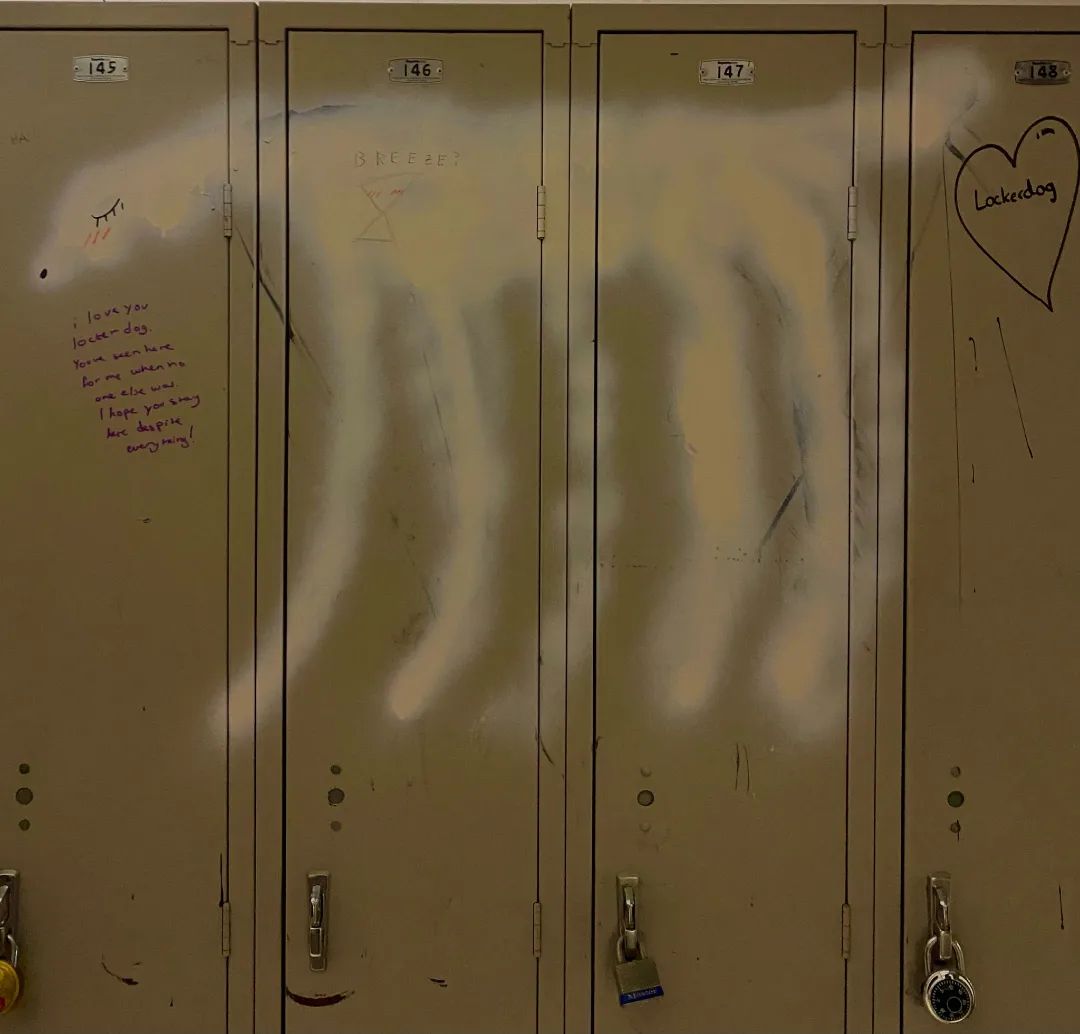 145
146
147
148
HA
BREEZE?
I'm
Lockerdog
i love you
locker dog.
You've been here
for me when no
one else was.
I hope you stay
here despite
everything!
Master